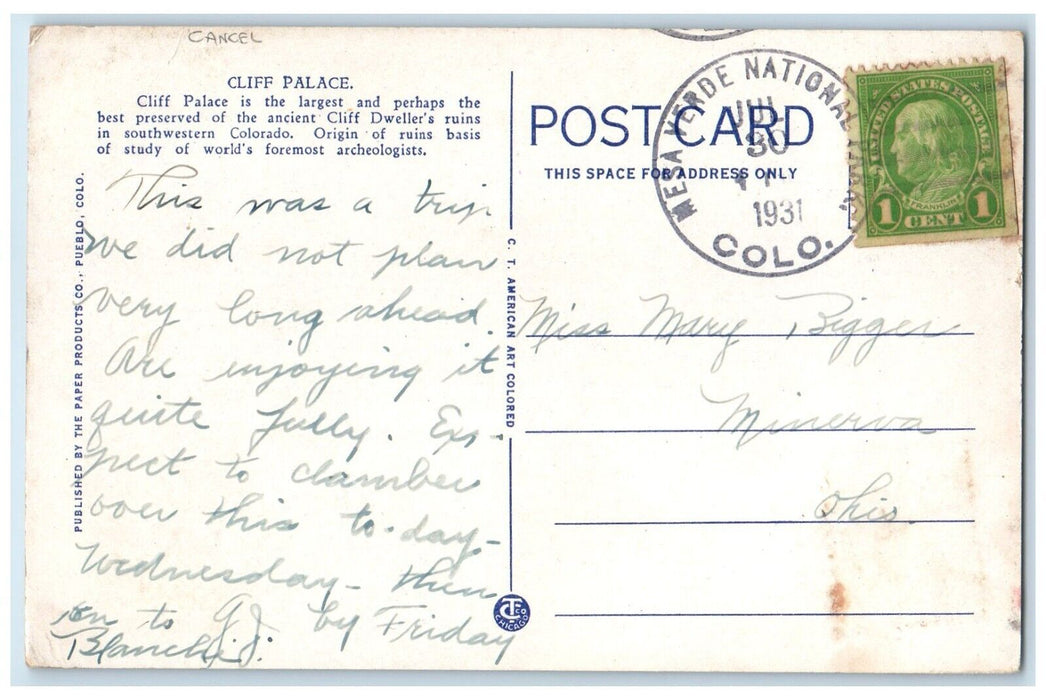 CANCEL
CLIFF PALACE.
Cliff Palace is the largest and perhaps the
best preserved of the ancient Cliff Dweller's ruins
in southwestern Colorado. Origin of ruins basis
of study of world's foremost archeologists.
This was a trip
we did not plan
very long ahead.
Are enjoying it
quite fully. Ex-
pect to clamber
over this to-day-
Wednesday - then
on to G.J. by Friday
Blanche J.
PUBLISHED BY THE PAPER PRODUCTS CO., PUEBLO, COLO.
C. T. AMERICAN ART COLORED
CHICAGO
POST CARD
THIS SPACE FOR ADDRESS ONLY
MESA VERDE NATIONAL
JUL
30
1931
COLO.
UNITED STATES POSTAGE
FRANKLIN
1 CENT 1
Miss Mary Bigger
Minerva
Ohio.